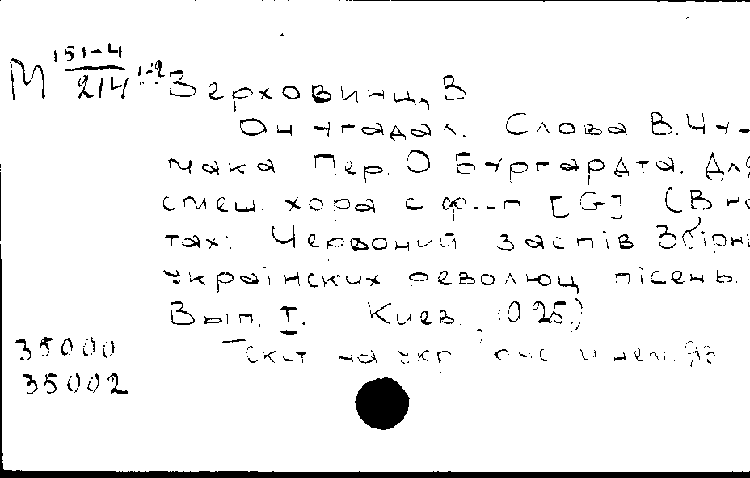 М 151-4/214 1-2
Верховинц, В
Он угадал. Слова В. Чу-
мака Пер. О Бургардта. Для
смеш. хора с ф..п [G] (В но
тах: Червоний заспів Збірн
українских революц пісень.
Вып. I. Киев. 025.)
35000 Текст на укр рус и нем. яз
35002